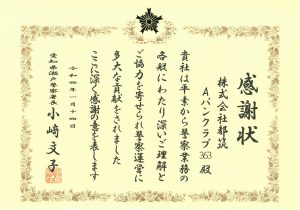 感謝状
株式会社都筑
Aバンクラブ363殿
貴社は平素から警察業務の
各般にわたり深いご理解と
ご協力を寄せられ警察運営に
多大な貢献をされました
ここに深く感謝の意を表します
令和四年一月十四日
愛知県瀬戸警察署長
小崎文子